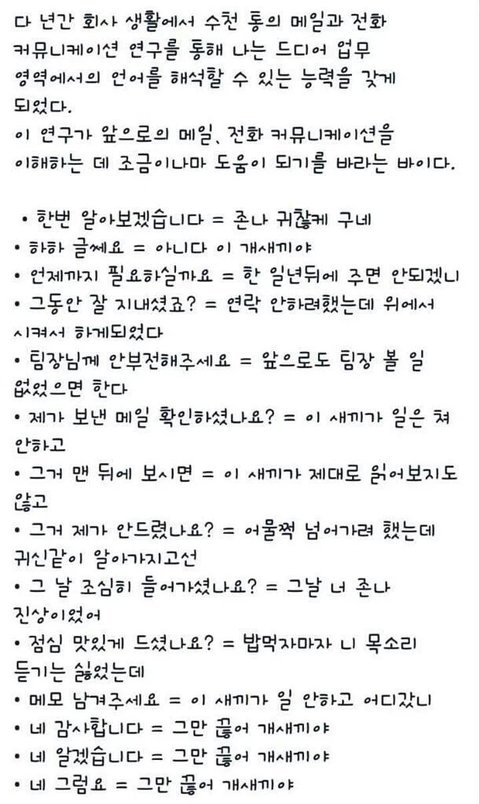 다 년간 회사 생활에서 수천 통의 메일과 전화
커뮤니케이션 연구를 통해 나는 드디어 업무
영역에서의 언어를 해석할 수 있는 능력을 갖게
되었다.
이 연구가 앞으로의 메일, 전화 커뮤니케이션을
이해하는 데 조금이나마 도움이 되기를 바라는 바이다.
• 한번 알아보겠습니다 = 존나 귀찮케 구네
• 하하 글쎄요 = 아니다 이 개새끼야
• 언제까지 필요하실까요 = 한 일년뒤에 주면 안되겠니
• 그동안 잘 지내셨죠? = 연락 안하려했는데 위에서
시켜서 하게되었다
• 팀장님께 안부전해주세요 = 앞으로도 팀장 볼 일
없었으면 한다
• 제가 보낸 메일 확인하셨나요? = 이 새끼가 일은 쳐
안하고
• 그거 맨 뒤에 보시면 = 이 새끼가 제대로 읽어보지도
않고
• 그거 제가 안드렸나요? = 어물쩍 넘어가려 했는데
귀신같이 알아가지고선
• 그 날 조심히 들어가셨나요? = 그날 너 존나
진상이었어
• 점심 맛있게 드셨나요? = 밥먹자마자 니 목소리
듣기는 싫었는데
• 메모 남겨주세요 = 이 새끼가 일 안하고 어디갔니
• 네 감사합니다 = 그만 끊어 개새끼야
• 네 알겠습니다 = 그만 끊어 개새끼야
• 네 그럼요 = 그만 끊어 개새끼야